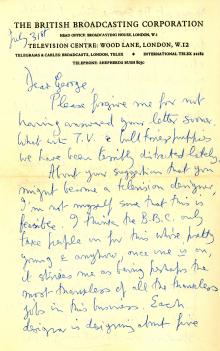 THE BRITISH BROADCASTING CORPORATION
HEAD OFFICE: BROADCASTING HOUSE, LONDON, W.1
TELEVISION CENTRE: WOOD LANE, LONDON, W.12
TELEGRAMS & CABLES: BROADCASTS, LONDON, TELEX ★ INTERNATIONAL TELEX 22182
TELEPHONE: SHEPHERDS BUSH 8030
July 31st
Dear George,
Please forgive me for not
having answered your letter sooner.
What with T.V. & bull terrier puppies
we have been terribly distracted lately.
About your suggestion that you
might become a television designer,
I'm not myself sure that this is
feasible. I think the B.B.C. only
take people on for this while pretty
young & anyhow, once one is on,
it strikes me as being perhaps the
most thankless of all the thankless
jobs in this business. Each
designer is designing about five